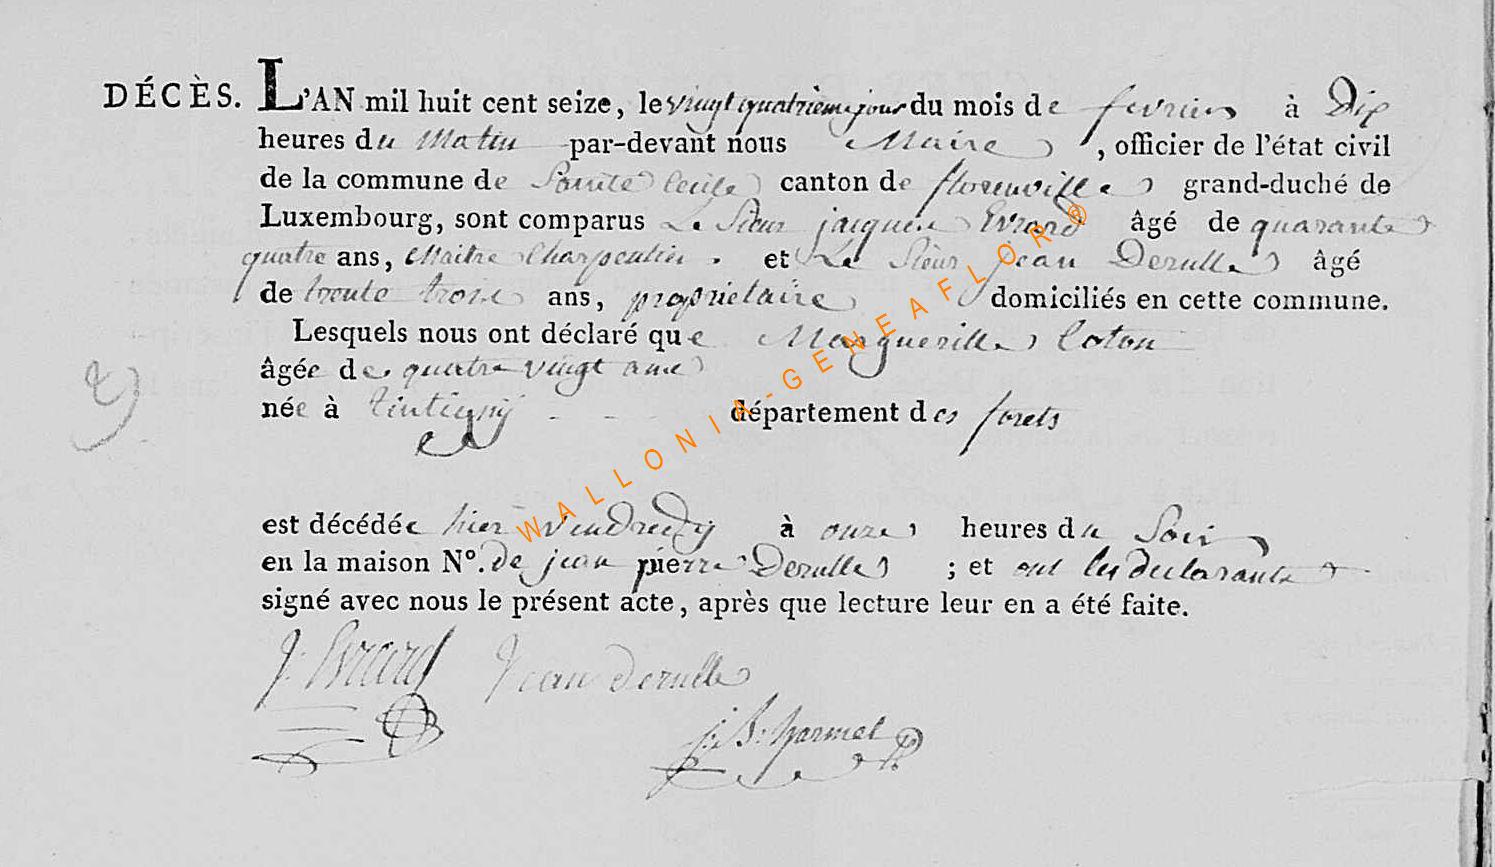 DÉCÈS. L'AN mil huit cent seize, le vingt quatrieme jour du mois de fevrier à Dix
heures du Matin par-devant nous Maire, officier de l'état civil
de la commune de Sainte Cecile canton de florenville grand-duché de
Luxembourg, sont comparus Le Sieur jacques Evrard âgé de quarante
quatre ans, Maitre Charpentier. et Le Sieur jean Derulle âgé
de trente trois ans, proprietaire domiciliés en cette commune.
Lesquels nous ont déclaré que Marguerille Coton
âgée de quatre vingt ans
née à tintigny - - - département des forets
est décédée hier vendredy à onze heures du Soir
en la maison N°. de jean pierre Derulle ; et ont les declarants
signé avec nous le présent acte, après que lecture leur en a été faite.
J: Evrard Jean Derulle
j: B: harmel
WALLONIA-GENEAFLOR®